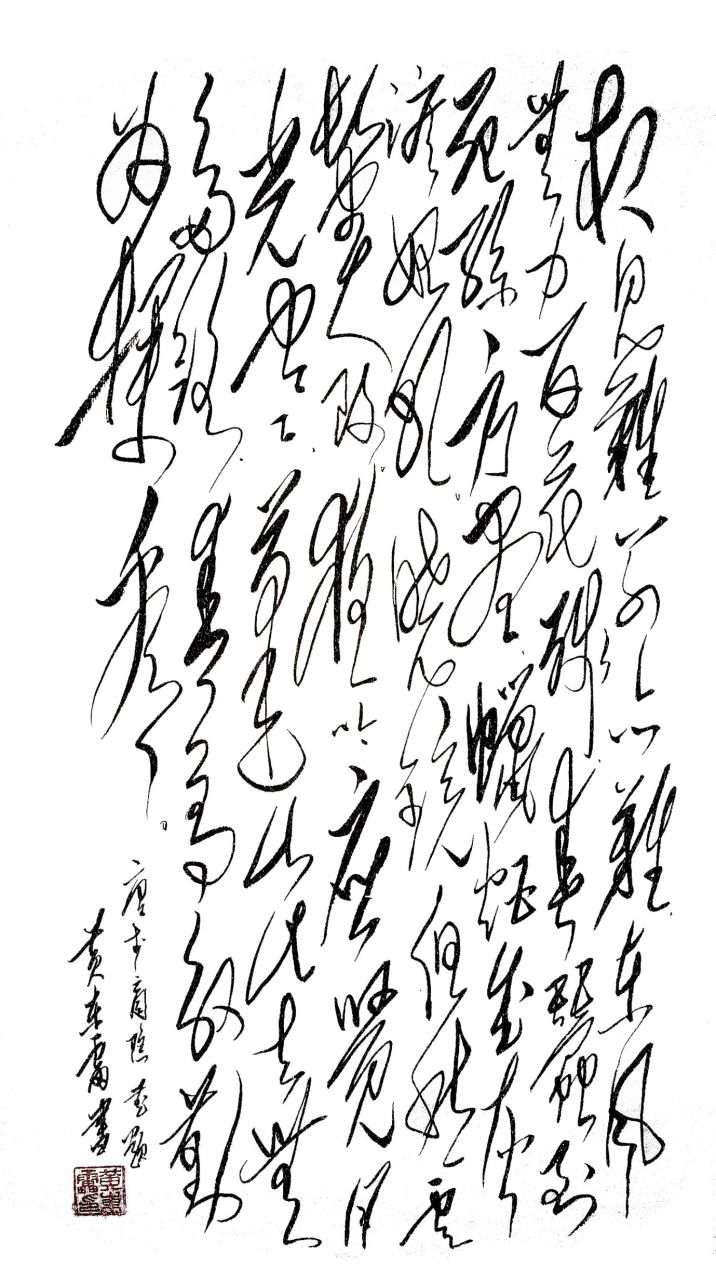 相見時難別亦難東風
無力百花殘春蠶到
死絲方盡蠟炬成灰
淚始乾曉鏡但愁雲
鬢改夜吟應覺月
光寒蓬山此去無
多路青鳥殷勤
為探看
唐李商隱無題
黄東雷書